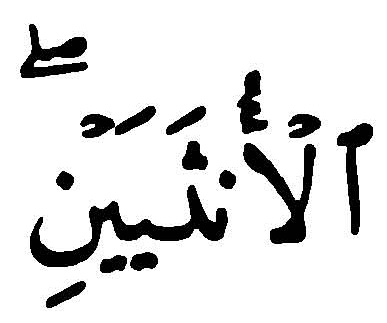 ٱلۡأُنثَيَيۡنِۖ